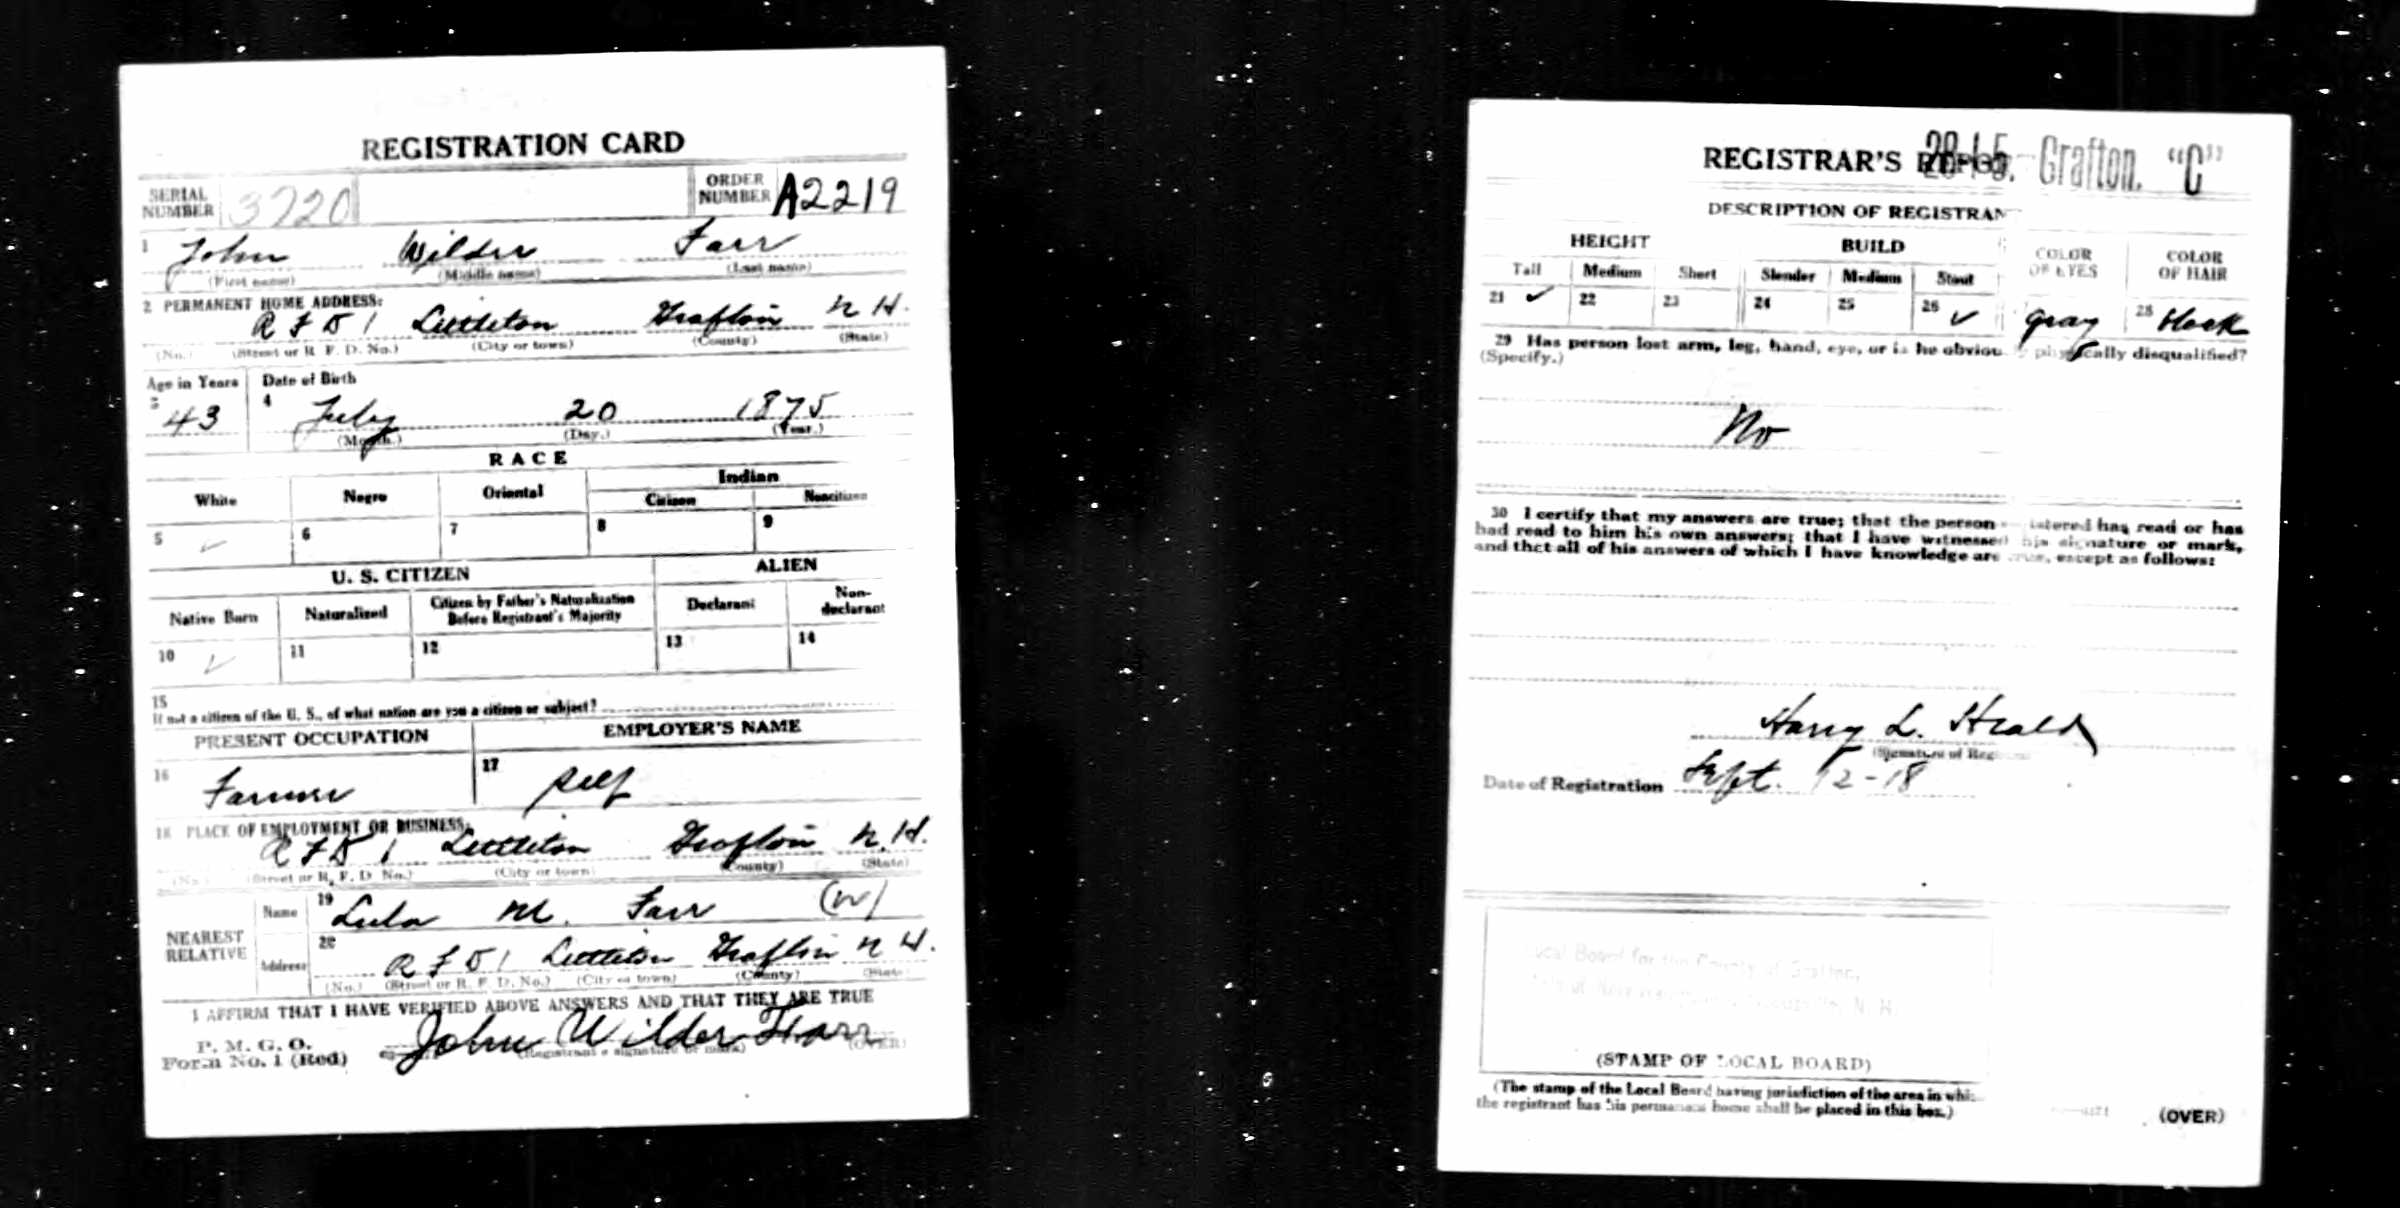 REGISTRATION CARD
SERIAL NUMBER 3720 ORDER NUMBER A2219
1 John Wilder Farr
(First name) (Middle name) (Last name)
2 PERMANENT HOME ADDRESS:
R F D 1 Littleton Grafton N H.
(No.) (Street or R. F. D. No.) (City or town) (County) (State)
Age in Years Date of Birth
3 43 4 July 20 1875
(Month.) (Day.) (Year.)
RACE
White Negro Oriental Indian
Citizen Noncitizen
5 ✓ 6 7 8 9
U. S. CITIZEN ALIEN
Native Born Naturalized Citizen by Father's Naturalization Before Registrant's Majority Declarant Non-declarant
10 ✓ 11 12 13 14
15
If not a citizen of the U. S., of what nation are you a citizen or subject?
PRESENT OCCUPATION EMPLOYER'S NAME
16 Farmer 17 self
18 PLACE OF EMPLOYMENT OR BUSINESS:
R F D 1 Littleton Grafton N.H.
(No.) (Street or R. F. D. No.) (City or town) (County) (State)
NEAREST RELATIVE
Name 19 Lula M. Farr (W)
Address 20 R F D 1 Littleton Grafton N H.
(No.) (Street or R. F. D. No.) (City or town) (County) (State)
I AFFIRM THAT I HAVE VERIFIED ABOVE ANSWERS AND THAT THEY ARE TRUE
P. M. G. O.
Form No. 1 (Red) John Wilder Farr
(Registrant's signature or mark) (OVER)
REGISTRAR'S Grafton. "C"
DESCRIPTION OF REGISTRAN
HEIGHT BUILD COLOR OF EYES COLOR OF HAIR
Tall Medium Short Slender Medium Stout
21 ✓ 22 23 24 25 26 ✓ gray 28 black
29 Has person lost arm, leg, hand, eye, or is he obviously physically disqualified?
(Specify.)
No
30 I certify that my answers are true; that the person istered has read or has
had read to him his own answers; that I have witnessed his signature or mark,
and that all of his answers of which I have knowledge are true, except as follows:
Harry L. Heald
(Signature of Reg
Date of Registration Sept. 12-18
Local Board for the County of Grafton,
N. H.
(STAMP OF LOCAL BOARD)
(The stamp of the Local Board having jurisdiction of the area in whi
the registrant has his permanent home shall be placed in this box.)
(OVER)